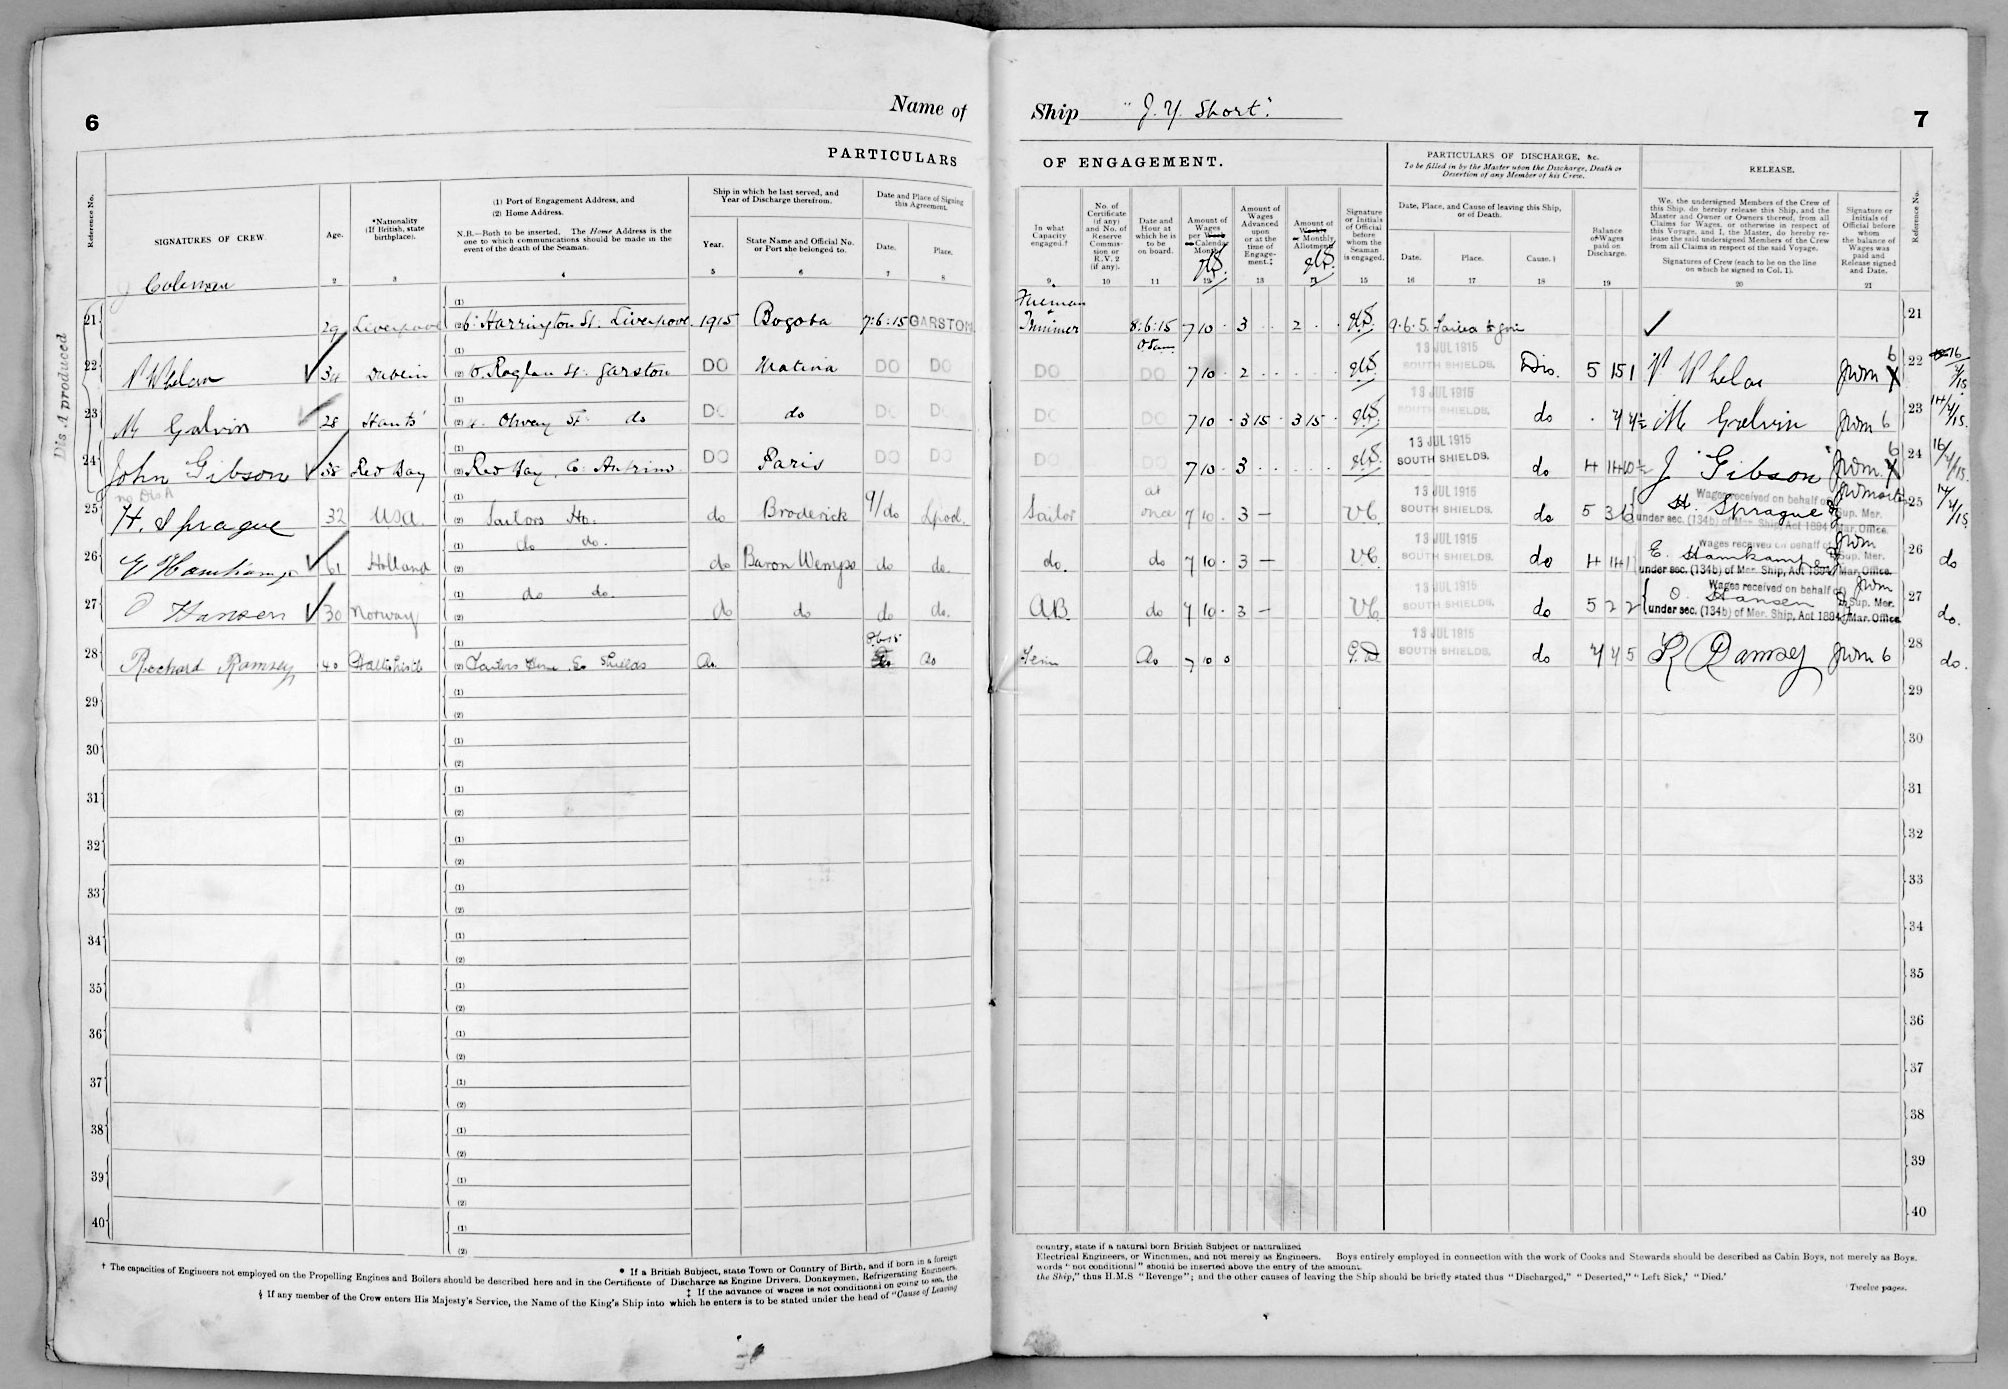 6
Name of
PARTICULARS
Reference No.
SIGNATURES OF CREW.
Age.
*Nationality
(If British, state
birthplace).
(1) Port of Engagement Address, and
(2) Home Address.
N.B.—Both to be inserted. The Home Address is the
one to which communications should be made in the
event of the death of the Seaman.
Ship in which he last served, and
Year of Discharge therefrom.
Year.
State Name and Official No.
or Port she belonged to.
Date and Place of Signing
this Agreement.
Date.
Place.
2 3 4 5 6 7 8
Dis A produced
J Coleman
21 29 Liverpool (1) (2) 6 Harrington St. Liverpool. 1915 Bogota 7:6:15 GARSTON
22 Whelan 34 Dublin (1) (2) Raglan St. Garston DO Matina DO DO
23 M Galvin 28 Hants (1) (2) Otway St. do DO do DO DO
24 John Gibson 38 Red Bay (1) (2) Red Bay, Co. Antrim DO Paris DO DO
no Dis A
25 H. Sprague 32 USA. (1) (2) Sailors Ho. do Broderick 9/do Lpool.
26 61 Holland (1) do do. (2) do Baron Wemyss do do.
27 O Hansen 30 Norway (1) do do. (2) do do do do.
28 Ramsey 40 (1) (2) Shields do do
29 (1) (2)
30 (1) (2)
31 (1) (2)
32 (1) (2)
33 (1) (2)
34 (1) (2)
35 (1) (2)
36 (1) (2)
37 (1) (2)
38 (1) (2)
39 (1) (2)
40 (1) (2)
* If a British Subject, state Town or Country of Birth, and if born in a foreign
† The capacities of Engineers not employed on the Propelling Engines and Boilers should be described here and in the Certificate of Discharge as Engine Drivers, Donkeymen, Refrigerating Engineers,
‡ If the advance of wages is not conditional on going to sea, the
§ If any member of the Crew enters His Majesty's Service, the Name of the King's Ship into which he enters is to be stated under the head of "Cause of Leaving
7
Ship "J. Y. Short."
OF ENGAGEMENT.
PARTICULARS OF DISCHARGE, &c.
To be filled in by the Master upon the Discharge, Death or
Desertion of any Member of his Crew.
RELEASE.
In what
Capacity
engaged.†
No. of
Certificate
(if any)
and No. of
Reserve
Commis-
sion or
R.V. 2
(if any).
Date and
Hour at
which he is
to be
on board.
Amount of
Wages
per Week
or Calendar
Month.
Amount of
Wages
Advanced
upon
or at the
time of
Engage-
ment.‡
Amount of
Weekly
or Monthly
Allotment.
Signature
or Initials
of Official
before
whom the
Seaman
is engaged.
Date, Place, and Cause of leaving this Ship,
or of Death.
Date.
Place.
Cause.§
Balance
of Wages
paid on
Discharge.
We, the undersigned Members of the Crew of
this Ship, do hereby release this Ship, and the
Master and Owner or Owners thereof, from all
Claims for Wages, or otherwise in respect of
this Voyage, and I, the Master, do hereby re-
lease the said undersigned Members of the Crew
from all Claims in respect of the said Voyage.
Signatures of Crew (each to be on the line
on which he signed in Col. 1).
Signature or
Initials of
Official before
whom
the balance of
Wages was
paid and
Release signed
and Date.
Reference No.
9 10 11 12 13 14 15 16 17 18 19 20 21
Fireman
&
Trimmer 8:6:15 7 10 3 2 Failed to join 21
DO DO 7 10 2 13 JUL 1915 SOUTH SHIELDS. Dis. 5 15 1 Whelan 22
DO DO 7 10 3 15 3 15 13 JUL 1915 SOUTH SHIELDS. do M Galvin 23
DO DO 7 10 3 13 JUL 1915 SOUTH SHIELDS. do J Gibson 24
Sailor at once 7 10 3 — 13 JUL 1915 SOUTH SHIELDS. do 5 3 Wages received on behalf of H. Sprague Sup. Mer. under sec. (134b) of Mer. Ship, Act 1894 Mar. Office. 25
do. do 7 10 3 — 13 JUL 1915 SOUTH SHIELDS. do Wages received on behalf of E. Sup. Mer. under sec. (134b) of Mer. Ship, Act 1894 Mar. Office. 26 do
A.B. do 7 10 3 — 13 JUL 1915 SOUTH SHIELDS. do 5 2 2 Wages received on behalf of O. Hansen Sup. Mer. under sec. (134b) of Mer. Ship, Act 1894 Mar. Office 27 do.
do 7 10 0 13 JUL 1915 SOUTH SHIELDS. do R Ramsey 28 do.
29
30
31
32
33
34
35
36
37
38
39
40
country, state if a natural born British Subject or naturalized
Electrical Engineers, or Winchmen, and not merely as Engineers. Boys entirely employed in connection with the work of Cooks and Stewards should be described as Cabin Boys, not merely as Boys.
words "not conditional" should be inserted above the entry of the amount.
the Ship," thus H.M.S "Revenge"; and the other causes of leaving the Ship should be briefly stated thus "Discharged," "Deserted," "Left Sick,' "Died.'
Twelve pages.